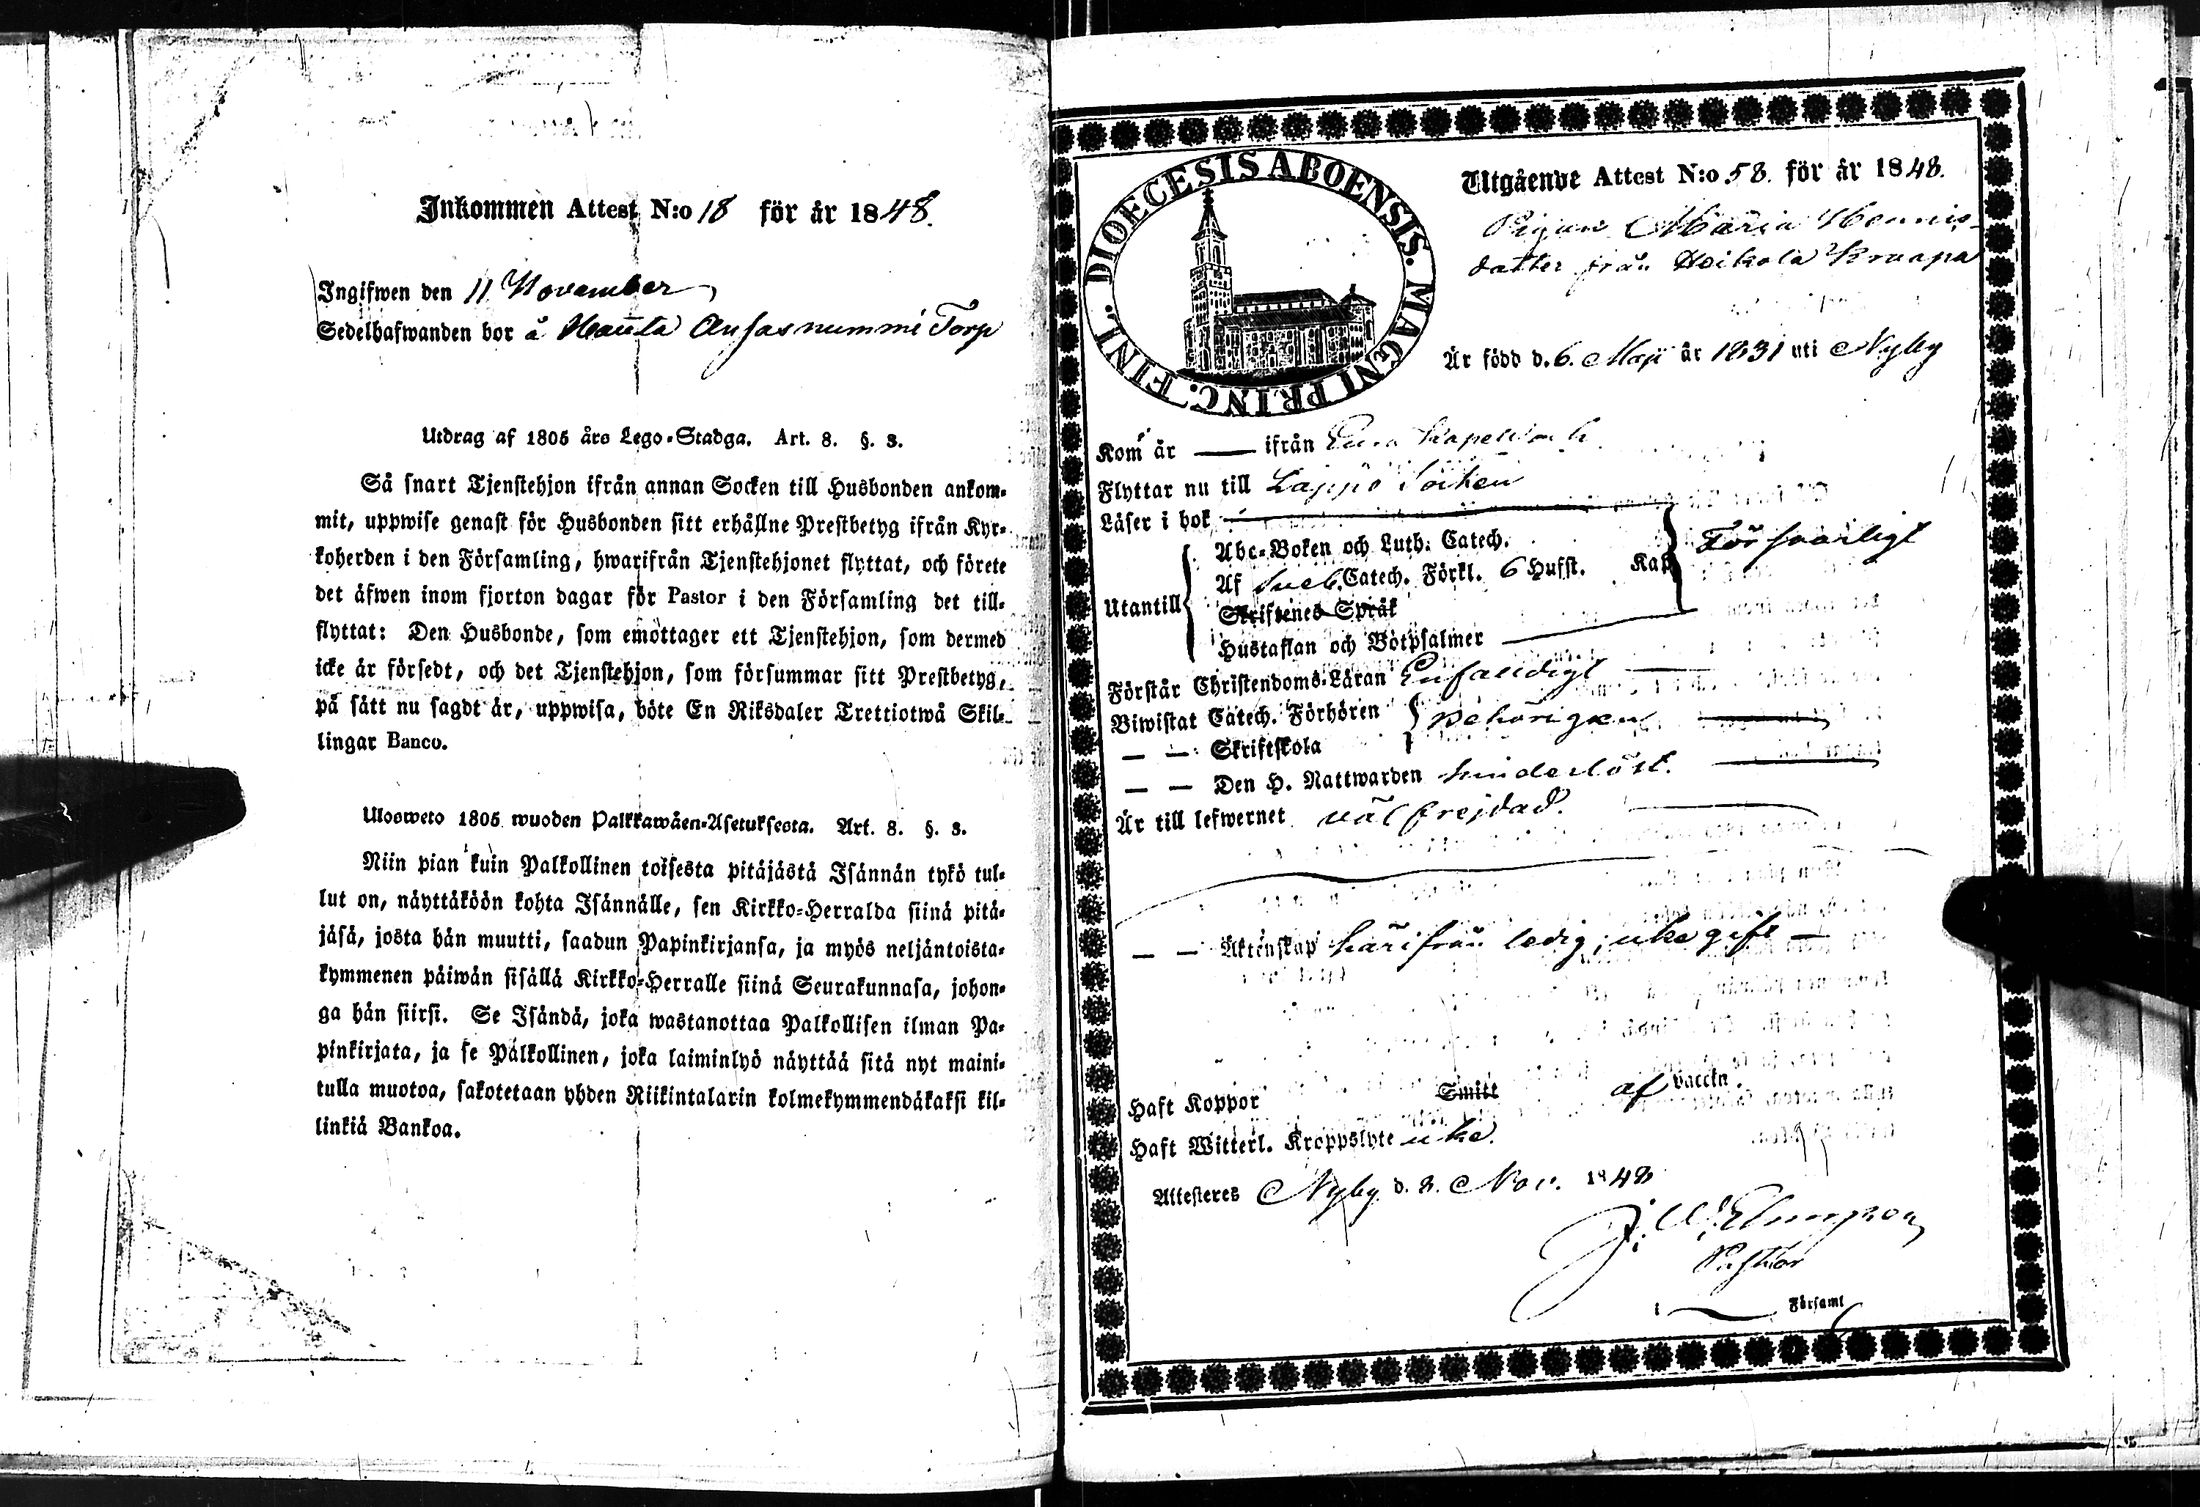 Inkommen Attest N:o 18 för år 1848.
Ingifwen den 11 November
Sedelhafwanden bor å Hauta Ansasnummi Torp
Utdrag af 1805 års Lego-Stadga. Art. 8. §. 3.
Så snart Tjenstehjon ifrån annan Socken till Husbonden ankom-
mit, uppwise genast för Husbonden sitt erhållne Prestbetyg ifrån Kyr-
koherden i den Församling, hwarifrån Tjenstehjonet flyttat, och förete
det äfwen inom fjorton dagar för Pastor i den Församling det till-
flyttat: Den Husbonde, som emottager ett Tjenstehjon, som dermed
icke är försedt, och det Tjenstehjon, som försummar sitt Prestbetyg,
på sätt nu sagdt är, uppwisa, böte En Riksdaler Trettiotwå Skil-
lingar Banco.
Ulosweto 1805 wuoden Palkkawäen-Asetuksesta. Art. 8. §. 3.
Niin pian kuin Palkollinen toisesta pitäjästä Isännän tykö tul-
lut on, näyttäköön kohta Isännälle, sen Kirkko-Herralda siinä pitä-
jäsä, josta hän muutti, saadun Papinkirjansa, ja myös neljäntoista-
kymmenen päiwän sisällä Kirkko-Herralle siinä Seurakunnasa, johon-
ga hän siirsi. Se Isändä, joka wastanottaa Palkollisen ilman Pa-
pinkirjata, ja se Palkollinen, joka laiminlyö näyttää sitä nyt maini-
tulla muotoa, sakotetaan yhden Riikintalarin kolmekymmendäkaksi kil-
linkiä Bankoa.
DIOECESIS ABOENSIS. MAGNI PRINC. FINL.
Utgående Attest N:o 58. för år 1848.
Pigan Maria Hennis-
dotter från Heikola Knaapa
Är född d. 6. Maji år 1831 uti Nyby
Kom år — ifrån Eura Kapell
Flyttar nu till Lappo Socken
Läser i bok
Abc-Boken och Luth. Catech.
Försvarligt
Af Sveb. Catech. Förkl. 6 Hufst. Kap
Utantill
Skriftenes Språk
Hustaflan och Botpsalmer
Förstår Christendoms-Läran Enfaldigt
Biwistat Catech. Förhören behörigen
— — Skriftskola
— — Den H. Nattwarden hinderlöst.
Är till lefwernet väl frejdad.
— — Äktenskap härifrån ledig; icke gift —
Haft Koppor Smitt af vaccin
Haft Witterl. Kroppslyte icke.
Attesteres Nyby d. 8. Nov. 1848
J. W.
Pastor
i Församl